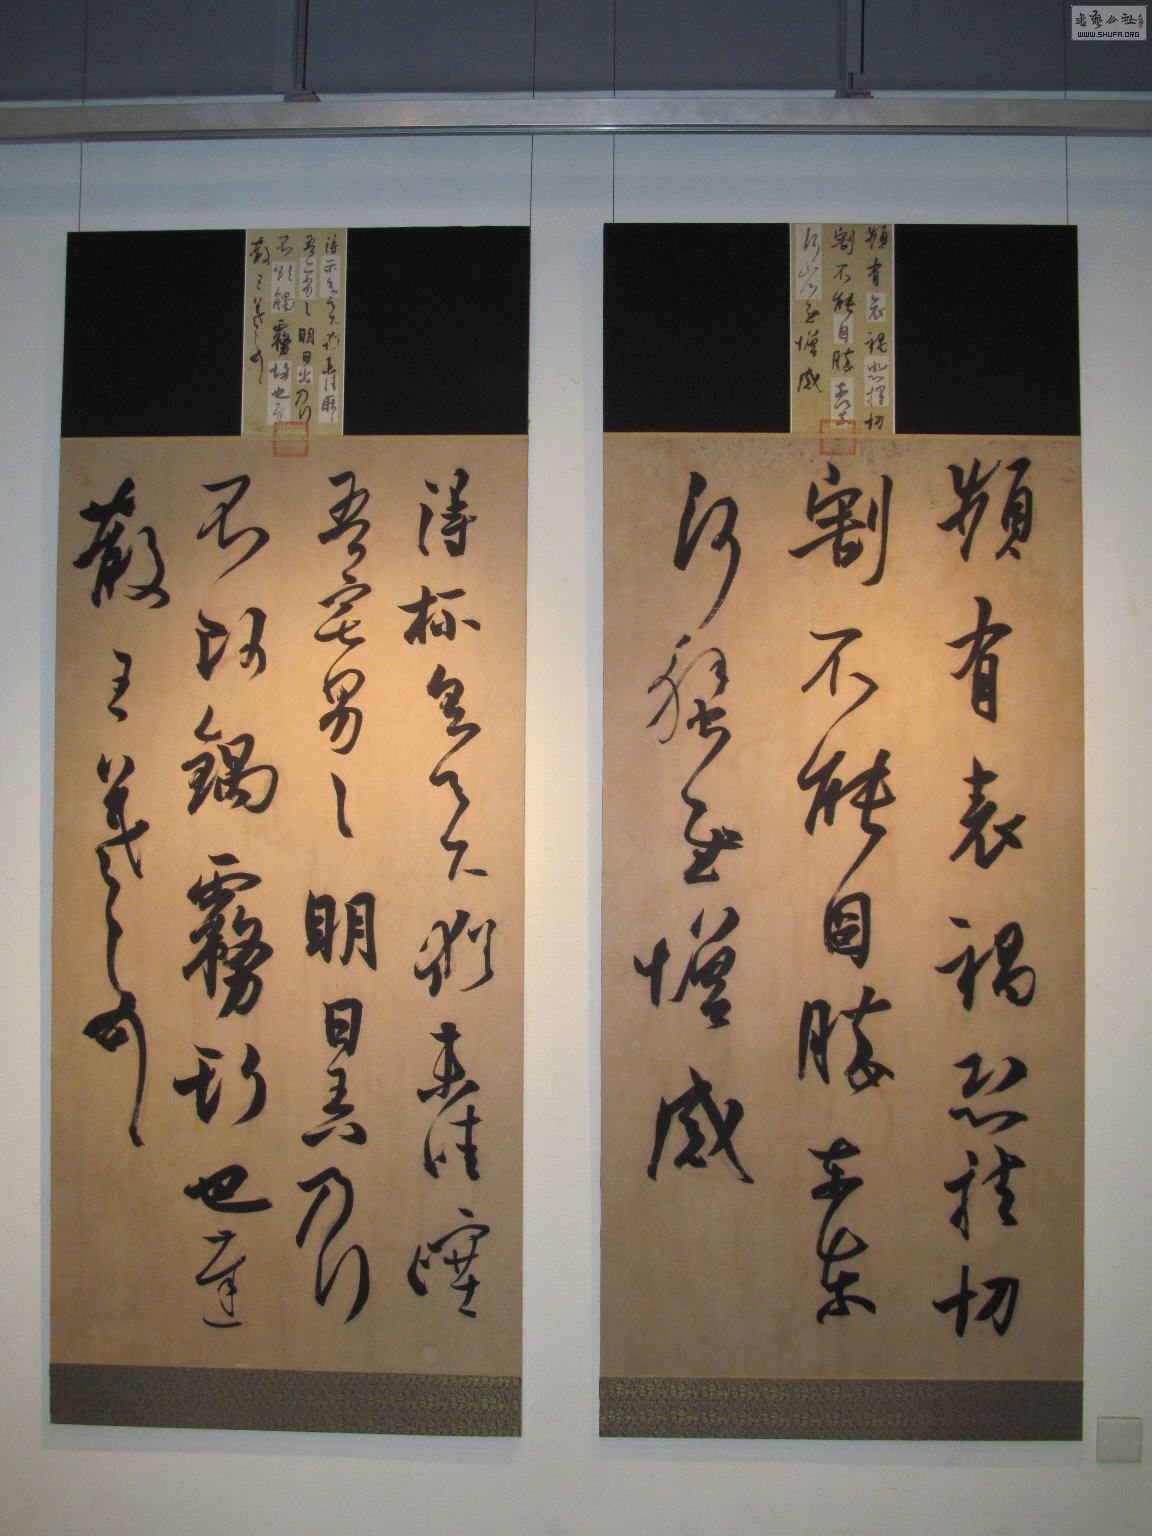 頻有哀禍悲摧切
割不能自勝奈何奈
何省慰增感
頻有哀禍悲摧切
割不能自勝奈
何省慰增感
得示知足下猶未佳耿
吾亦劣劣明日出乃行
不欲觸霧故也遲
散王羲之頓首
得示知足下猶未佳耿
吾亦劣劣明日出乃行
不欲觸霧故也遲
散王羲之頓首
WWW.SHUFA.ORG